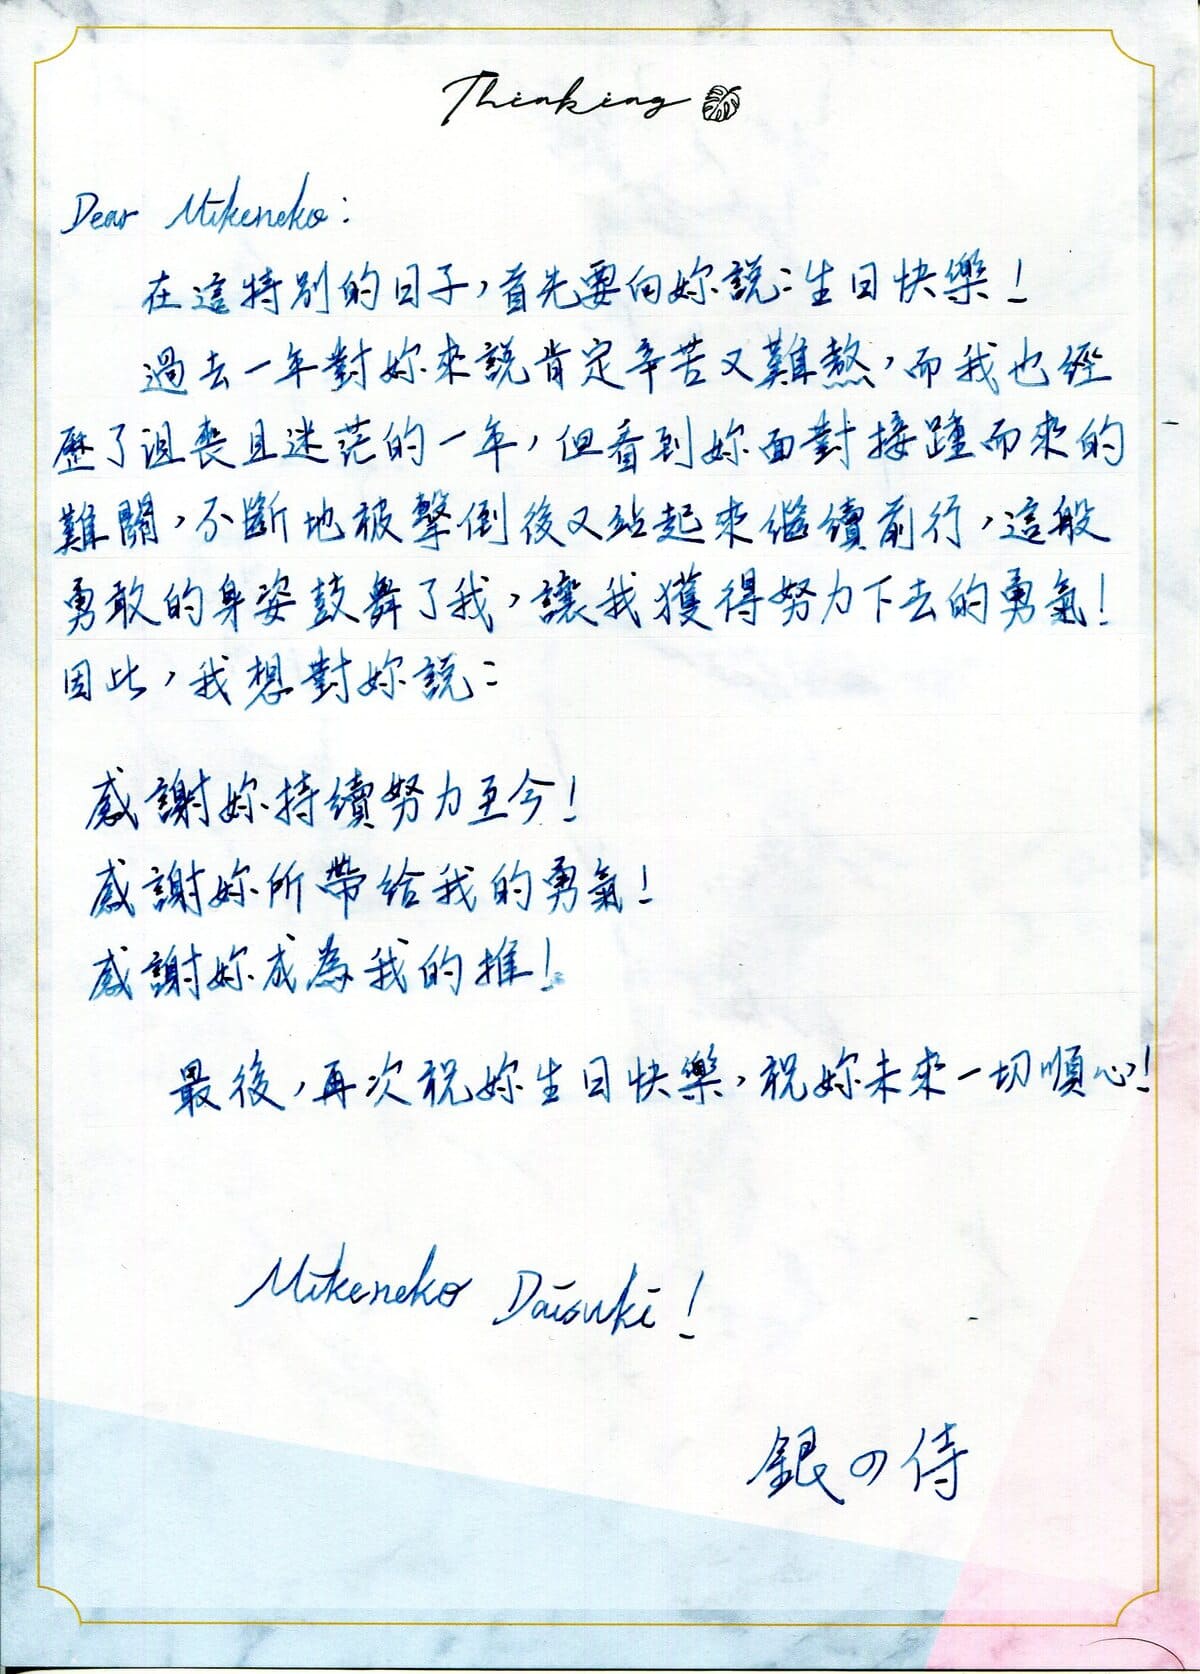 Thinking
Dear Mikeneko:
在這特別的日子,首先要向妳說:生日快樂!
過去一年對妳來說肯定辛苦又難熬,而我也經
歷了沮喪且迷茫的一年,但看到妳面對接踵而來的
難關,不斷地被擊倒後又站起來繼續前行,這般
勇敢的身姿鼓舞了我,讓我獲得努力下去的勇氣!
因此,我想對妳說:
感謝妳持續努力至今!
感謝妳所帶給我的勇氣!
感謝妳成為我的推!
最後,再次祝妳生日快樂,祝妳未來一切順心!
Mikeneko Daisuki!
銀の侍